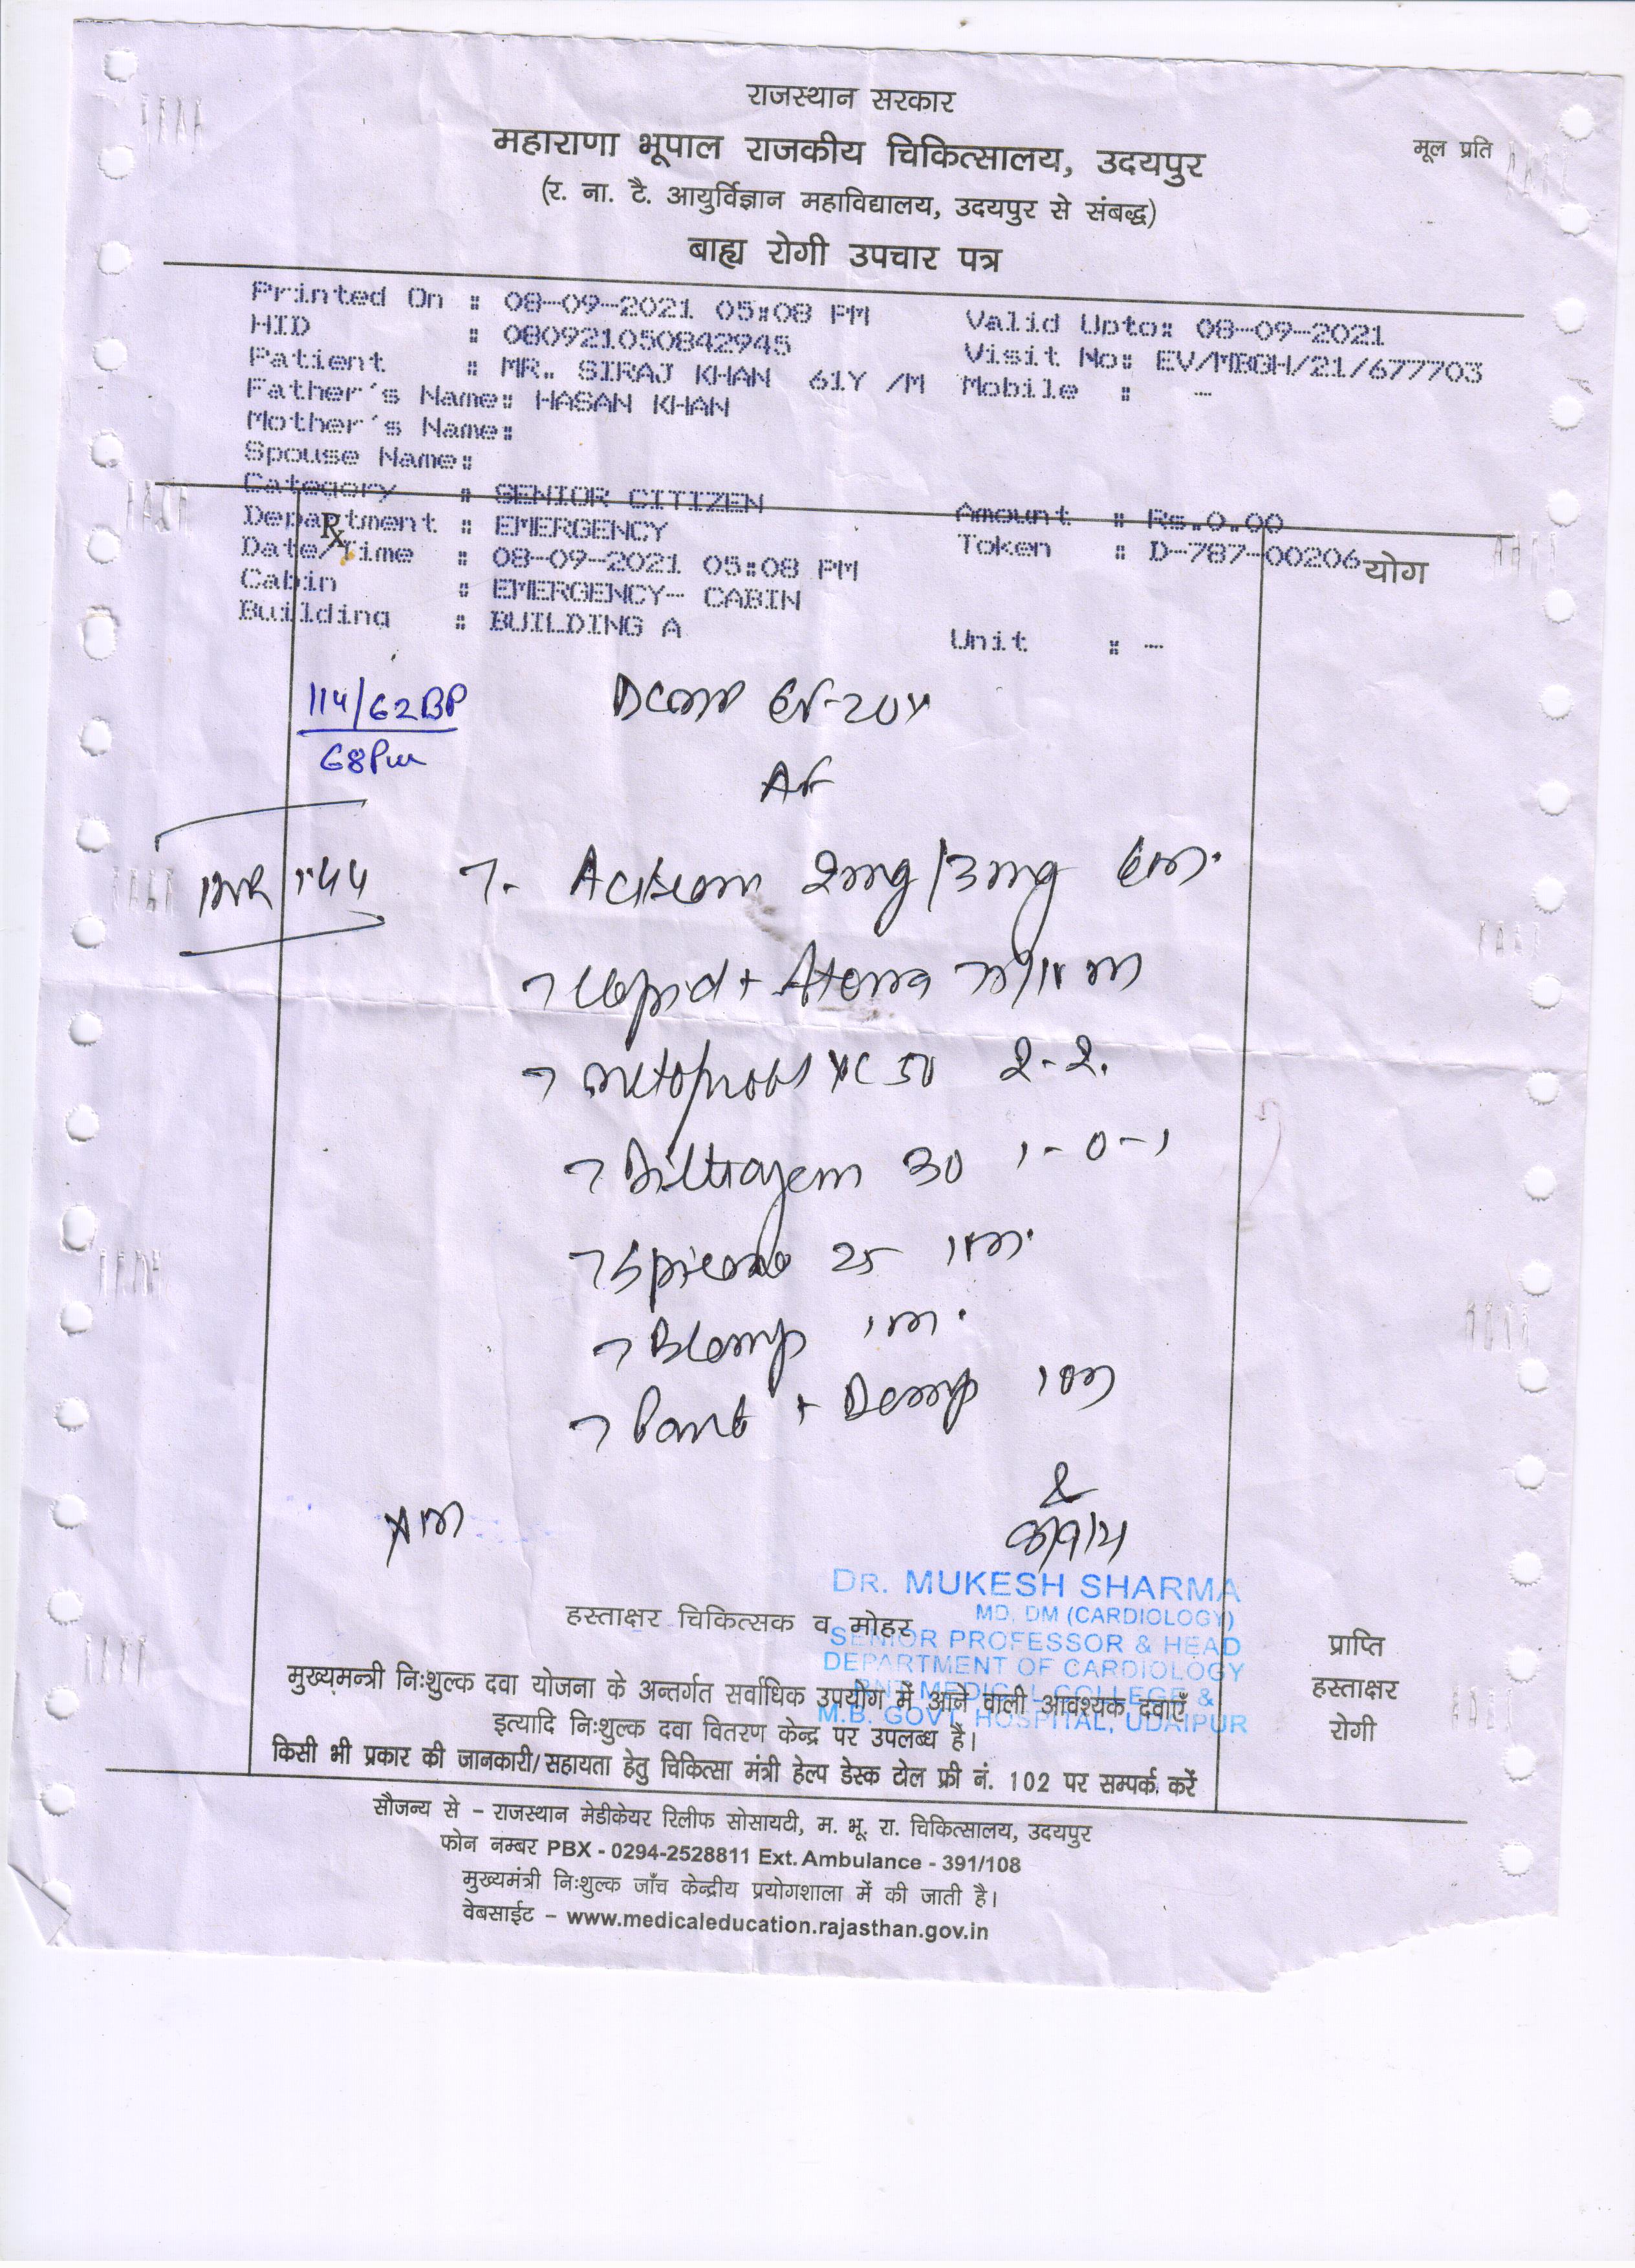 राजस्थान सरकार
महाराणा भूपाल राजकीय चिकित्सालय, उदयपुर
मूल प्रति
(र. ना. टै. आयुर्विज्ञान महाविद्यालय, उदयपुर से संबद्ध)
बाह्य रोगी उपचार पत्र
Printed On : 08-09-2021 05:08 PM Valid Upto: 08-09-2021
HID : 080921050842945 Visit No: EV/MBGH/21/677703
Patient : MR. SIRAJ KHAN 61Y /M Mobile : -
Father's Name: HASAN KHAN
Mother's Name:
Spouse Name:
Category : SENIOR CITIZEN Amount : Rs.0.00
Department : EMERGENCY Token : D-787-00206
Rx
योग
Date/Time : 08-09-2021 05:08 PM
Cabin : EMERGENCY- CABIN
Building : BUILDING A Unit : -
114/62 BP
68
DCMP EF-20%
AF
INR 1.44
2mg/3mg
+ Atorva
50 2-2.
Diltiazem 30 1-0-1
25
DR. MUKESH SHARMA
MD, DM (CARDIOLOGY)
हस्ताक्षर चिकित्सक व मोहर
SENIOR PROFESSOR & HEAD
DEPARTMENT OF CARDIOLOGY
RNT MEDICAL COLLEGE &
M.B. GOVT. HOSPITAL, UDAIPUR
प्राप्ति
हस्ताक्षर
रोगी
मुख्यमन्त्री निःशुल्क दवा योजना के अन्तर्गत सर्वाधिक उपयोग में आने वाली आवश्यक दवाएँ
इत्यादि निःशुल्क दवा वितरण केन्द्र पर उपलब्ध है।
किसी भी प्रकार की जानकारी/सहायता हेतु चिकित्सा मंत्री हेल्प डेस्क टोल फ्री नं. 102 पर सम्पर्क करें
सौजन्य से – राजस्थान मेडीकेयर रिलीफ सोसायटी, म. भू. रा. चिकित्सालय, उदयपुर
फोन नम्बर PBX - 0294-2528811 Ext. Ambulance - 391/108
मुख्यमंत्री निःशुल्क जाँच केन्द्रीय प्रयोगशाला में की जाती है।
वेबसाईट – www.medicaleducation.rajasthan.gov.in